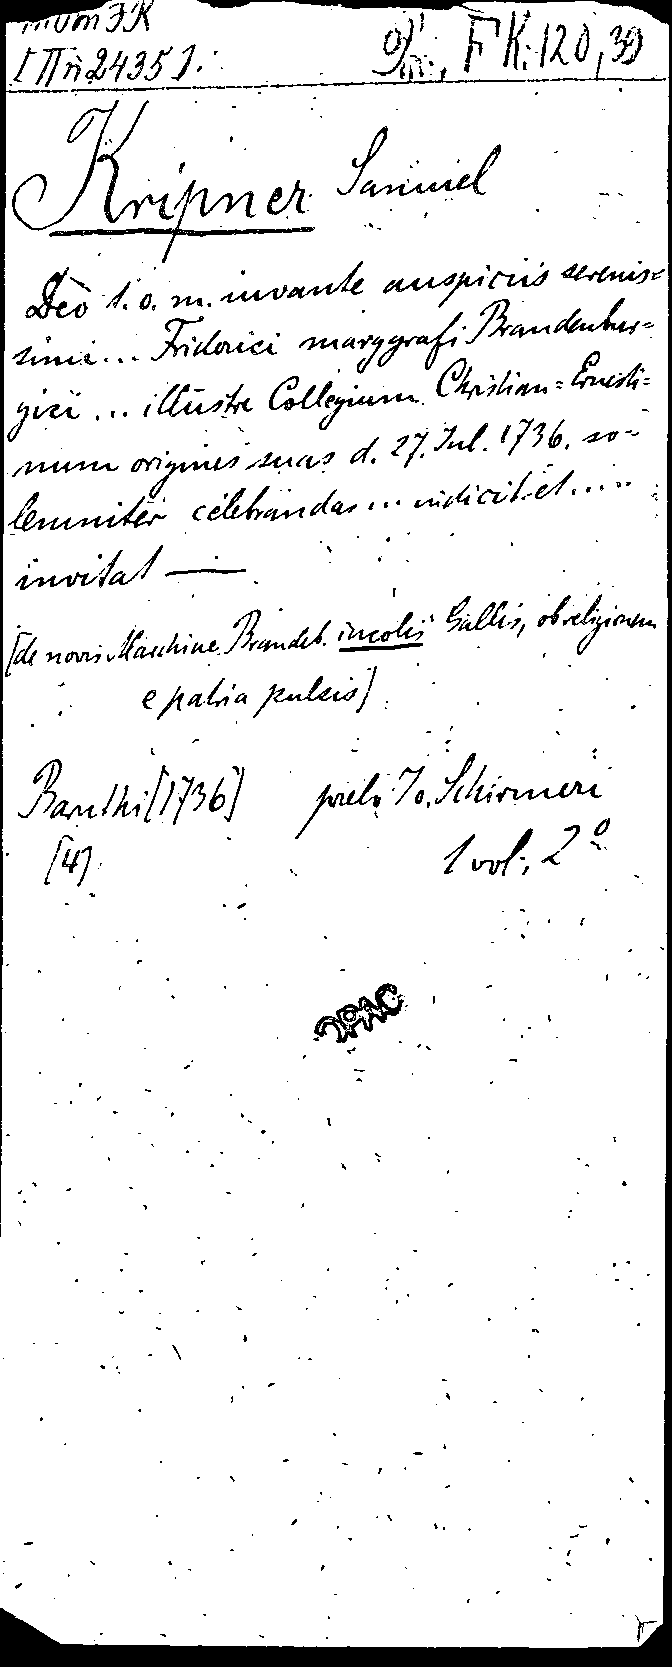 FK
[IT n 2435].
FK. 120, 39
Kripner Samuel
Deo t. o. m. iuvante auspiciis serenis=
simi... Friderici marggrafi Brandenbur=
gici ... illustre Collegium Christian=Ernesti=
num origines suas d. 27. Jul. 1736. so=
lemniter celebrandas ... indicit et .....
invitat —
[de novis Marchiae Brandeb. incolis Gallis, ob religionem
e patria pulsis]
Baruthi [1736] prelo Jo. Schirmeri
[4]. 1 vol., 2º
OPAC